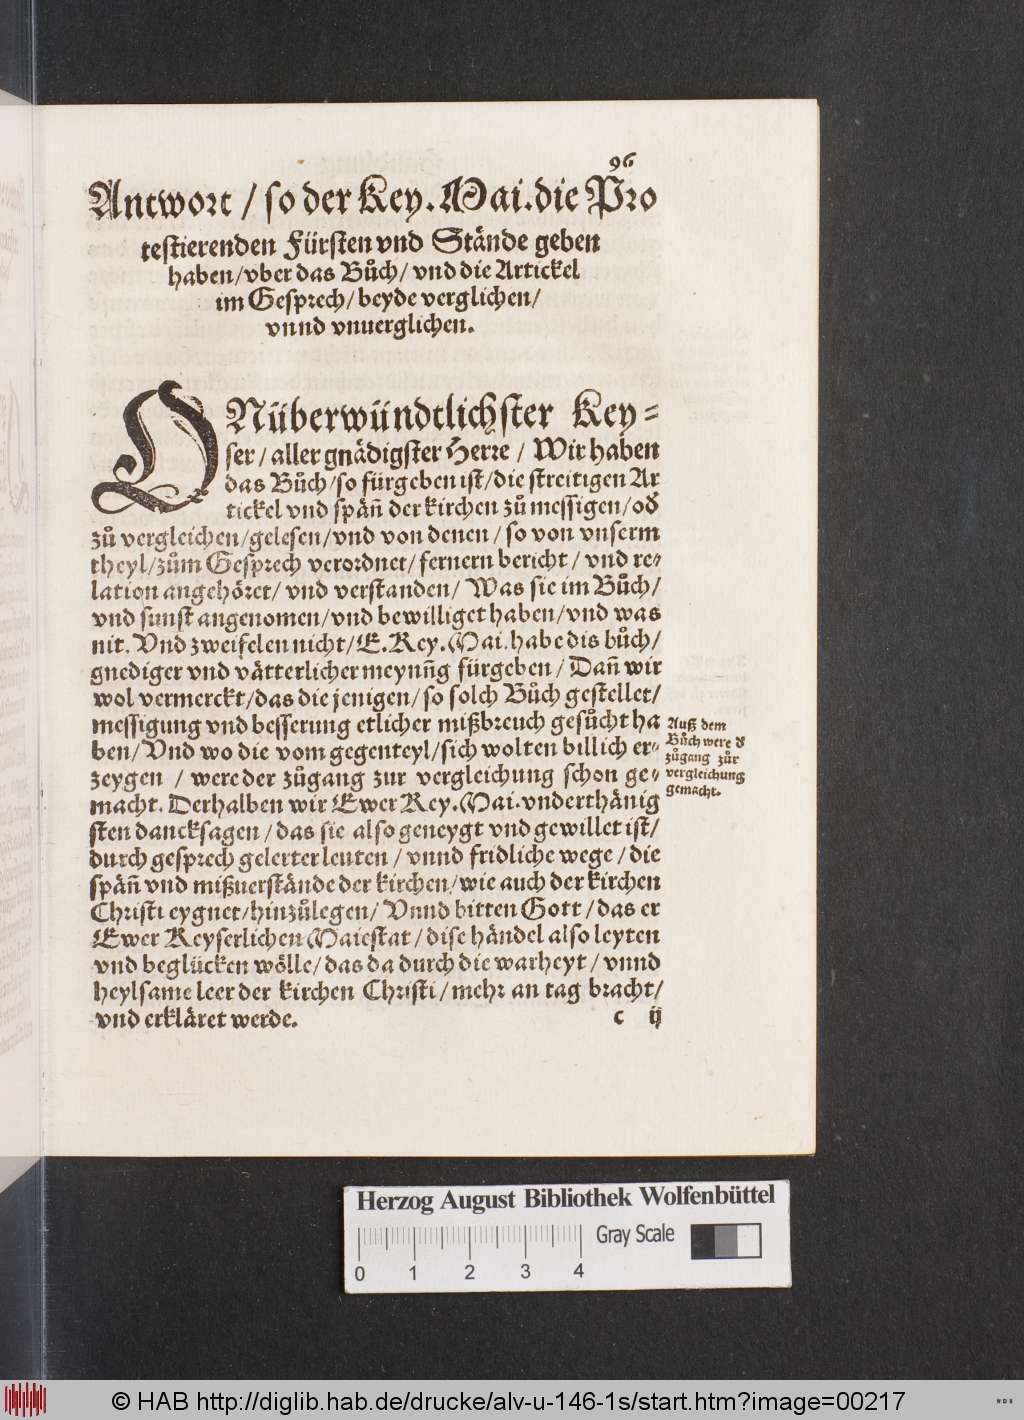 96
Antwort / so der Key. Mai. die Pro
testierenden Fürsten vnd Stände geben
haben / vber das Bůch / vnd die Artickel
im Gesprech / beyde verglichen /
vnnd vnuerglichen.
ONüberwündtlichster Key=
ser / aller gnädigster Herre / Wir haben
das Bůch / so fürgeben ist / die streitigen Ar
tickel vnd spän̄ der kirchen zů messigen / od̕
zů vergleichen / gelesen / vnd von denen / so von vnserm
theyl / zům Gesprech verordnet / fernern bericht / vnd re=
lation angehöret / vnd verstanden / Was sie im Bůch /
vnd sunst angenomen / vnd bewilliget haben / vnd was
nit. Vnd zweifelen nicht / E. Key. Mai. habe dis bůch /
gnediger vnd vätterlicher meynun̄g fürgeben / Dan̄ wir
wol vermerckt / das die jenigen / so solch Bůch gestellet /
messigung vnd besserung etlicher mißbreuch gesůcht ha
ben / Vnd wo die vom gegenteyl / sich wolten billich er=
zeygen / were der zůgang zur vergleichung schon ge=
macht. Derhalben wir Ewer Key. Mai. vnderthänig
sten dancksagen / das sie also geneygt vnd gewillet ist /
durch gesprech gelerter leuten / vnnd fridliche wege / die
spän̄ vnd mißuerstände der kirchen / wie auch der kirchen
Christi eygnet / hinzůlegen / Vnnd bitten Gott / das er
Ewer Keyserlichen Maiestat / dise händel also leyten
vnd beglücken wölle / das da durch die warheyt / vnnd
heylsame leer der kirchen Christi / mehr an tag bracht /
vnd erkläret werde.
c ij
Auß dem
Bůch were d̕
zůgang zůr
vergleichung
gemacht.
Herzog August Bibliothek Wolfenbüttel
Gray Scale
0 1 2 3 4
© HAB http://diglib.hab.de/drucke/alv-u-146-1s/start.htm?image=00217